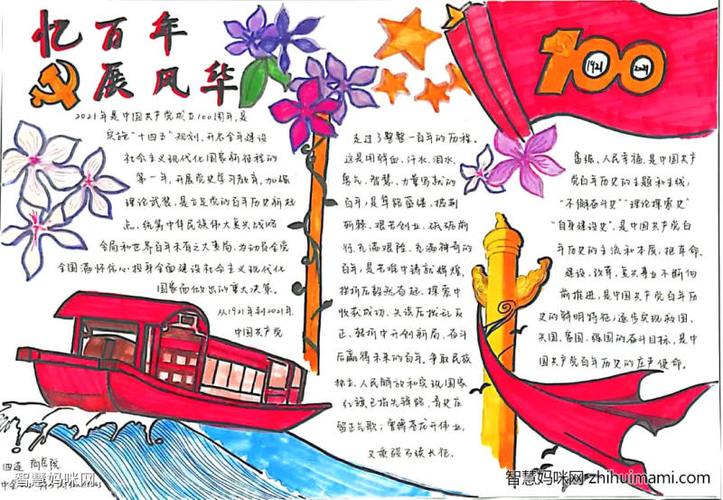 忆百年
展风华
1921
2021
100
2021年是中国共产党成立100周年，是
实施"十四五"规划、开启全年建设
社会主义现代化国家新征程的
第一年，开展党史学习教育，加强
理论武装，是立足党的百年历史新起
点、统筹中华民族伟大复兴战略
全局和世界百年未有之大变局、为动员全党
全国满怀信心投身全面建设社会主义现代化
国家而做出的重大决策。
从1921年到2021年，
中国共产党
走过了整整一百年的历程。
这是用鲜血、汗水、泪水、
勇气、智慧、力量写就的
百年，是筚路蓝缕、披荆
斩棘、艰苦创业、砥砺前
行、充满艰险、充满神奇的
百年，是苦难中铸就辉煌、
挫折后毅然奋起、探索中
收获成功、失误后拨乱反
正、转折中开创新局、奋斗
后赢得未来的百年，争取民族
独立、人民解放和实现国家
富强、人民幸福，是中国共产
党百年历史的主题和主线；
"不懈奋斗史""理论探索史"
"自身建设史"，是中国共产党百
年历史的主流和本质，把革命、
建设、改革、复兴事业不断向
前推进，是中国共产党百年历
史的鲜明特征；逐步实现救国、
兴国、富国、强国的奋斗目标，是中
国共产党百年历史的庄严使命。
智慧妈咪网
智慧妈咪网 zhihuimami.com